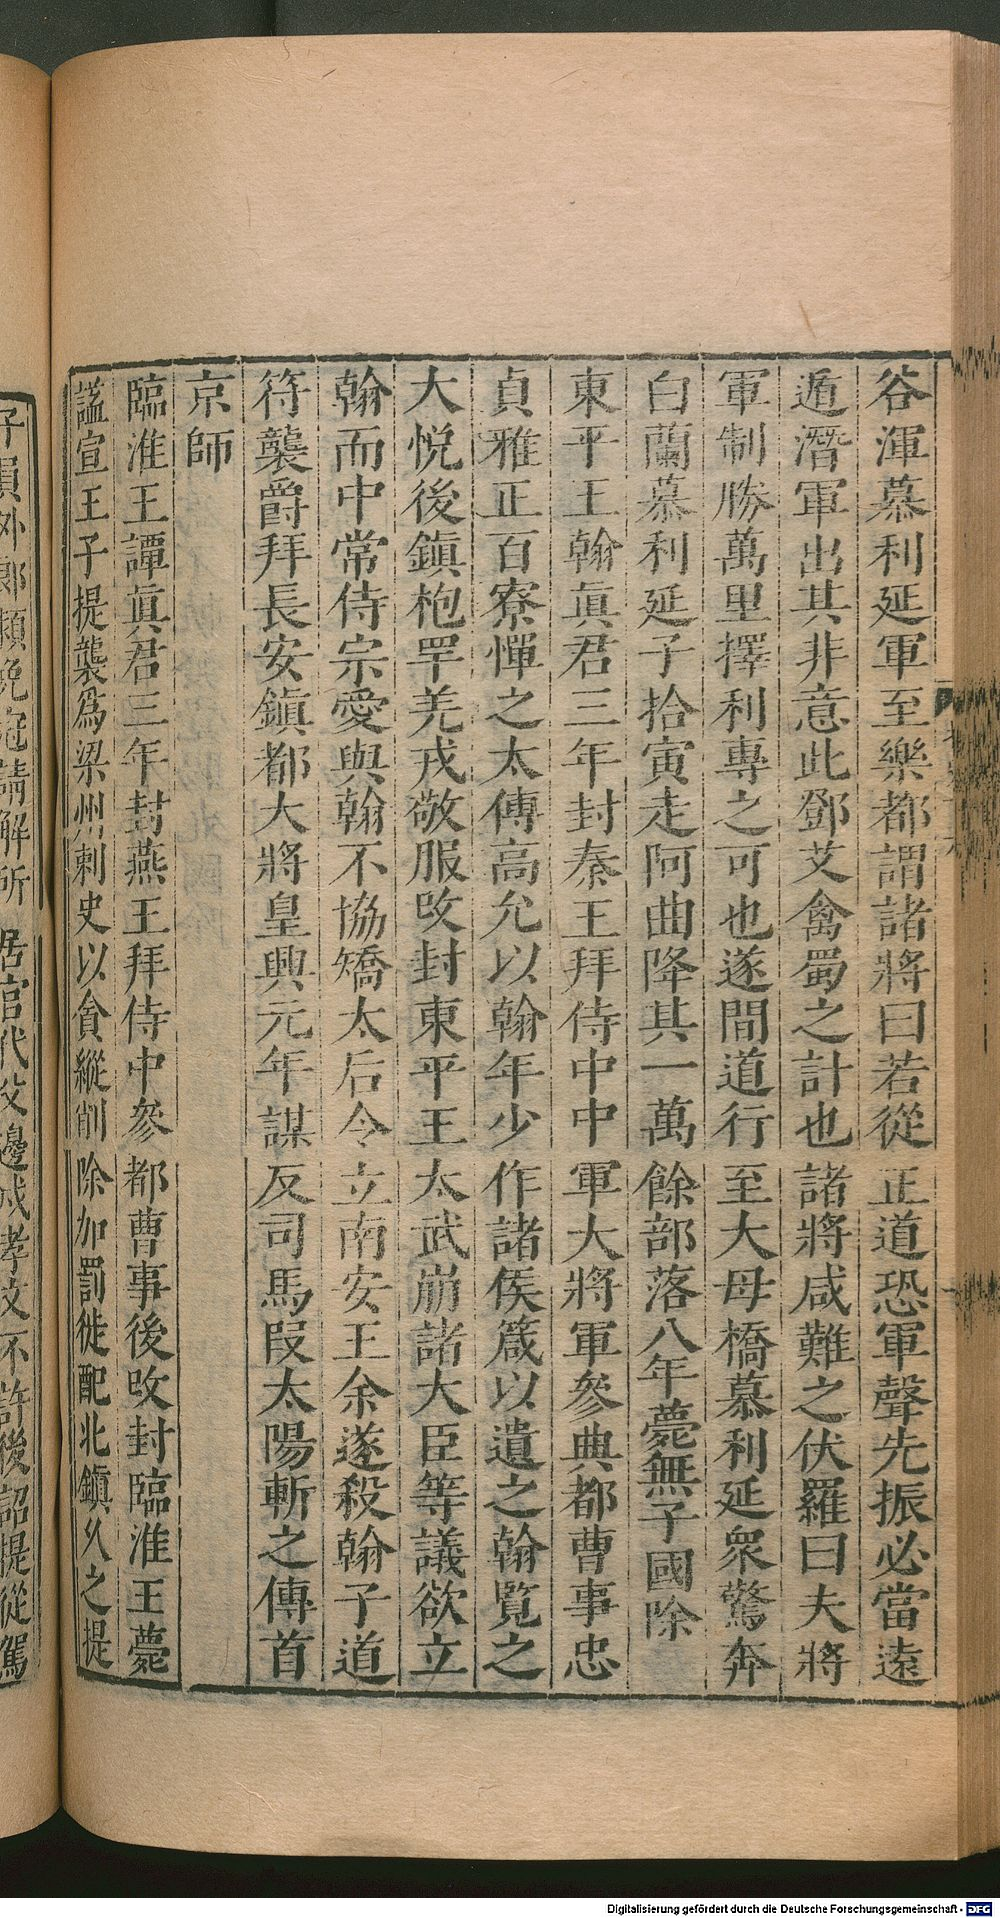 谷渾慕利延軍至樂都謂諸將曰若從正道恐軍聲先振必當遠
遁潛軍出其非意此鄧艾禽蜀之計也諸將咸難之伏羅曰夫將
軍制勝萬里擇利專之可也遂間道行至大母橋慕利延衆驚奔
白蘭慕利延子拾寅走阿曲降其一萬餘部落八年薨無子國除
東平王翰眞君三年封秦王拜侍中中軍大將軍參典都曹事忠
貞雅正百寮憚之太傅高允以翰年少作諸侯箴以遺之翰覽之
大悅後鎮枹罕羌戎敬服改封東平王太武崩諸大臣等議欲立
翰而中常侍宗愛與翰不協矯太后令立南安王余遂殺翰子道
符襲爵拜長安鎮都大將皇興元年謀反司馬段太陽斬之傳首
京師
臨淮王譚眞君三年封燕王拜侍中參都曹事後改封臨淮王薨
諡宣王子提襲爲梁州刺史以貪縱削除加罰徙配北鎮久之提
子員外郎穎免冠請解所居官代父邊戍孝文不許後詔提從駕
Digitalisierung gefördert durch die Deutsche Forschungsgemeinschaft - DFG